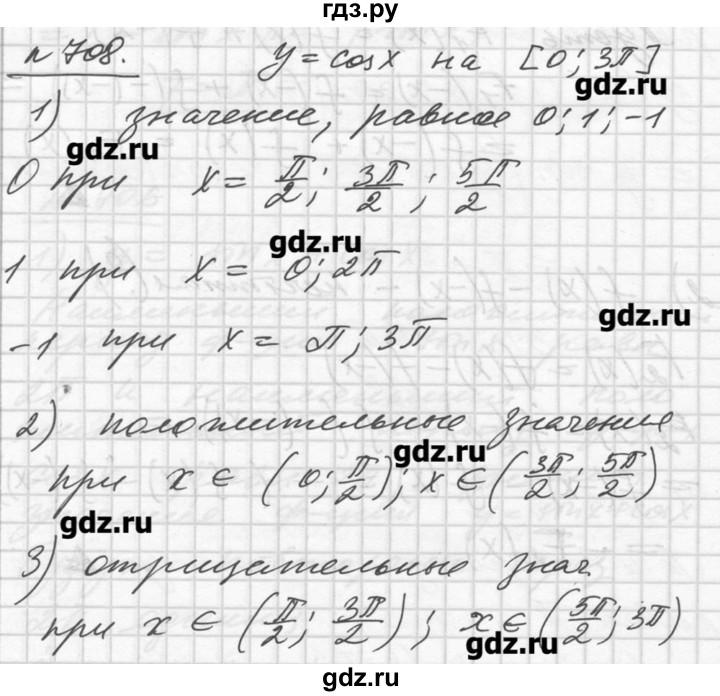 гдз.ру
n 708. y = cos x на [0; 3π]
gdz.ru
1) значение, равное 0; 1; -1
gdz.ru
0 при x = π/2; 3π/2; 5π/2
gdz.ru
1 при x = 0; 2π
gdz.ru
-1 при x = π; 3π
2) положительные значение
gdz.ru
при x ∈ (0; π/2); x ∈ (3π/2; 5π/2)
gdz.ru
3) отрицательные знач.
при x ∈ (π/2; 3π/2); x ∈ (5π/2; 3π)
gdz.ru
gdz.ru